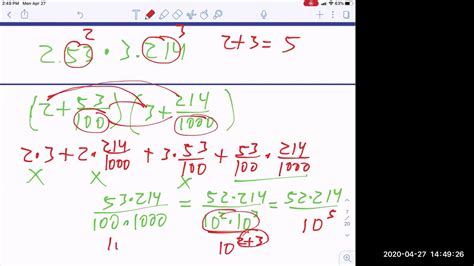 3:49 PM Mon Apr 27
63%
2.53² · 3.214³ 2+3=5
(2 + 53/100)(3 + 214/1000)
2·3 + 2·214/1000 + 3·53/100 + 53/100·214/1000
x x x
53·214/100·1000 = 52·214/10²·10³ = 52·214/10⁵
10²⁺³
2020-04-27 14:49:26